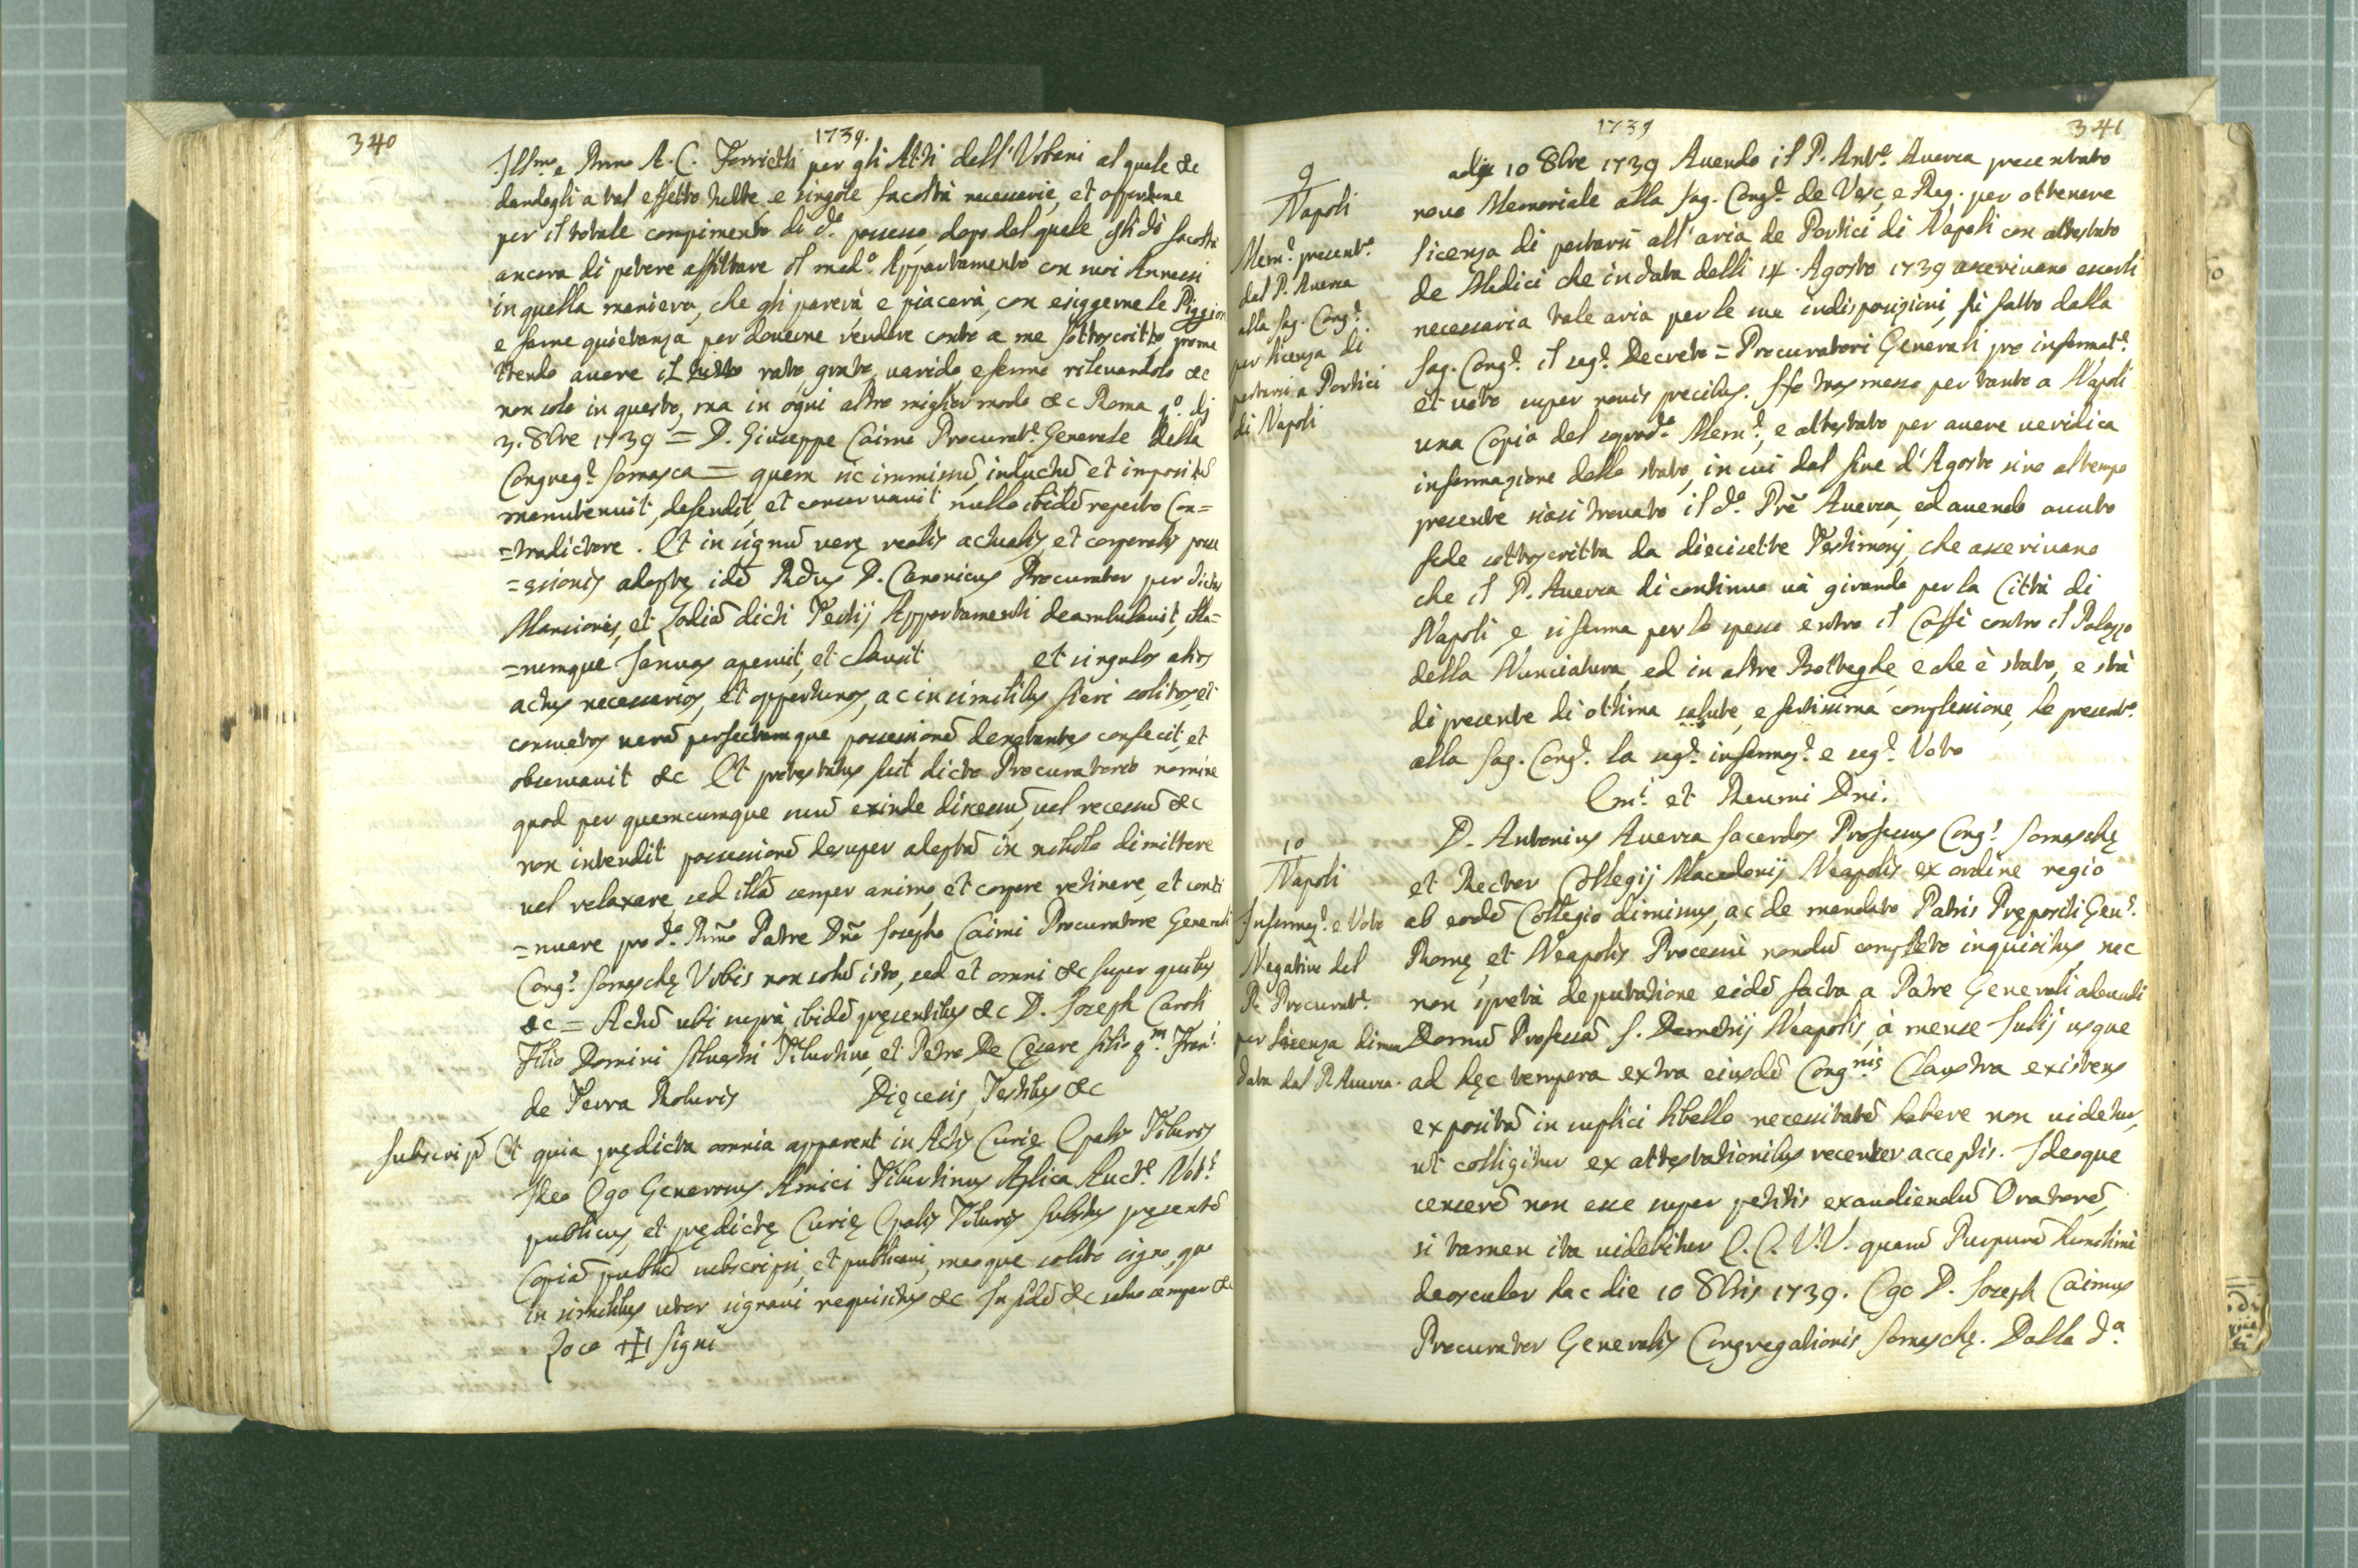 340
1739.
Ill.mo e Rmo A. C. Ferrietti per gli Atti dell'Urbani al quale &c
dandogli a tal effetto tutte e singole facoltà necessarie, et opportune
per il totale compimento di d.o possesso, dopo del quale gli dò facoltà
ancora di potere affittare il med.o Appartamento con suoi Annessi
in quella maniera, che gli parerà, e piacerà, con esiggerne le Piggioni
e farne quietanza per doverne rendere conto a me sottoscritto prome
ttendo avere il tutto rato, grato, vavido e fermo rilevandolo &c
non solo in questo, ma in ogni altro miglior modo &c Roma q.o dj
3. 8bre 1739 = D. Giuseppe Caimo Procurat.e Generale della
Congreg.e Somasca = quem sic immissũ, inductũ et impositũ
manutenuit, defendit, et conservavit nullo ibidẽ reperto Con=
=tradictore. Et in signũ verę realis actualis, et corporalis posse
=ssionis adeptę idẽ Rdus D. Canonicus Procurator per dictas
Mansiones, et Lodiã dicti Tertij Appartamenti deambulavit, illa=
=rumque Januas aperuit, et clausit et singulos alios
actus necessarios, et opportunos, ac in similibus fieri solitos, et
consuetos verã perfectamque possessionẽ denotantes confecit, et
observavit &c Et protestatus fuit dicto Procuratorio nomine
quod per quemcumque suũ exinde discessũ, vel recessũ &c
non intendit possessionẽ desuper adeptã in nihilo dimittere
vel relaxare sed illã semper animo, et corpore retinere, et conti
=nuare pro d.o Rmo Patre Dño Josepho Caimi Procuratore Generali
Cong.s Somaschę Urbis non solũ isto, sed et omni &c super quibus
&c = Actũ ubi suprà ibidẽ pręsentibus &c D. Joseph Caroli
Filio Domini Silvestri Tiburtino, et Petro De Cesare filio q.m Fran.i
de Terra Roburis Dięcesis, Testibus &c
Subscripõ Et quia prędicta omnia apparent in Actis Curię Epalis Tiburis
Ideo Ego Generosus Amici Tiburtinus Aplica Auct.e Not.s
publicus, et prędictę Curię Epalis Tiburis Substus pręsentẽ
Copiã publicã subscripsi, et publicavi, meoque solito signo, quo
in similibus utor signavi requisitus &c In fidẽ &c salvo semper &c
Loco ✠ Signi
1739
341
9
Napoli
Mem.e present.o
dal P. Aversa
alla Sag. Cong.e
per licenza di
portarsi a Portici
di Napoli
adì 10 8bre 1739 Avendo il P. Ant.o Aversa presentato
novo Memoriale alla Sag. Cong.e de Vesc. e Reg. per ottenere
licenza di portarsi all'aria de Portici di Napoli con attestato
de Medici che in data delli 14. Agosto 1739 asserivano esserli
necessaria tale aria per le sue indisposizioni, fù fatto dalla
Sag. Cong.e il seg.e Decreto = Procuratori Generali pro informat.e
et voto super novis precibus. Ho trasmesso per tanto a Napoli
una Copia del sopred.o Mem.e, e attestato per avere veridica
informazione dello stato, in cui dal fine d'Agosto sino al tempo
presente siasi trovato il d.o Prẽ Aversa, ed avendo avuto
fede sottoscritta da diecisette Testimonj, che asserivano
che il P. Aversa di continuo và girando per la Città di
Napoli, e si ferma per lo spesso entro il Caffè contro il Palazzo
della Nunciatura, ed in altre Botteghe, e che è stato, e stà
di presente di ottima salute, e fortissima complessione, ho present.o
alla Sag. Cong.e la seg.e informaz.e e seg.e Voto
Emi. et Reumi Dni.
10
Napoli
Informaz.e e Voto
Negativo del
P. Procurat.e
per licenza diman
data dal P. Aversa.
D. Antonius Aversa Sacerdos Professus Cong.s Somaschę
et Rector Collegij Macedonij Neapolis ex ordine regio
ab eodẽ Collegio dimissus, ac de mandato Patris Prępositi Gen.s
Romę, et Neapolis Processu nondũ completo inquisitus, nec
non spretà deputatione eidẽ facta a Patre Generali abeundi
Domũ Professã S. Demetrij Neapolis, à mense Julij usque
ad hęc tempora extra eiusdẽ Cong.nis Claustra existens
expositã in supplici libello necessitatẽ habere non videtur,
ut colligitur ex attestationibus recenter acceptis. Ideoque
censerẽ non esse super petitis exaudiendũ Oratorẽ,
si tamen ita videbitur E.E. V.V. quarũ Purpurã humilimè
deosculor hac die 10 8bris 1739. Ego D. Joseph Caimus
Procurator Generalis Congregationis Somaschę. Dalla d.a